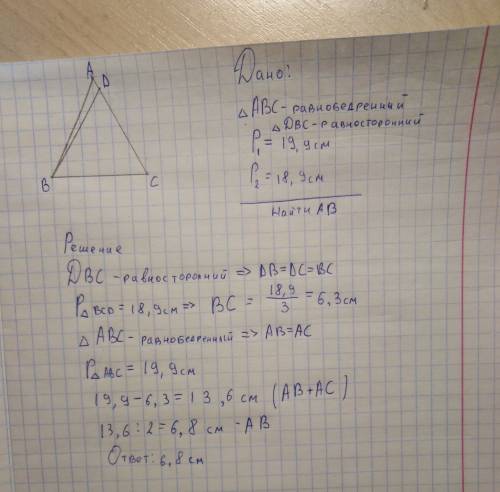 A
D
B
C
Дано:
△ ABC - равнобедренный
△ DBC - равносторонний
P₁ = 19,9 см
P₂ = 18,9 см
Найти AB
Решение
DBC - равносторонний => DB=DC=BC
P△ BCD = 18,9 см => BC = 18,9/3 = 6,3 см
△ ABC - равнобедренный => AB=AC
P△ ABC = 19,9 см
19,9-6,3=13,6 см (AB+AC)
13,6:2=6,8 см - AB
Ответ: 6,8 см